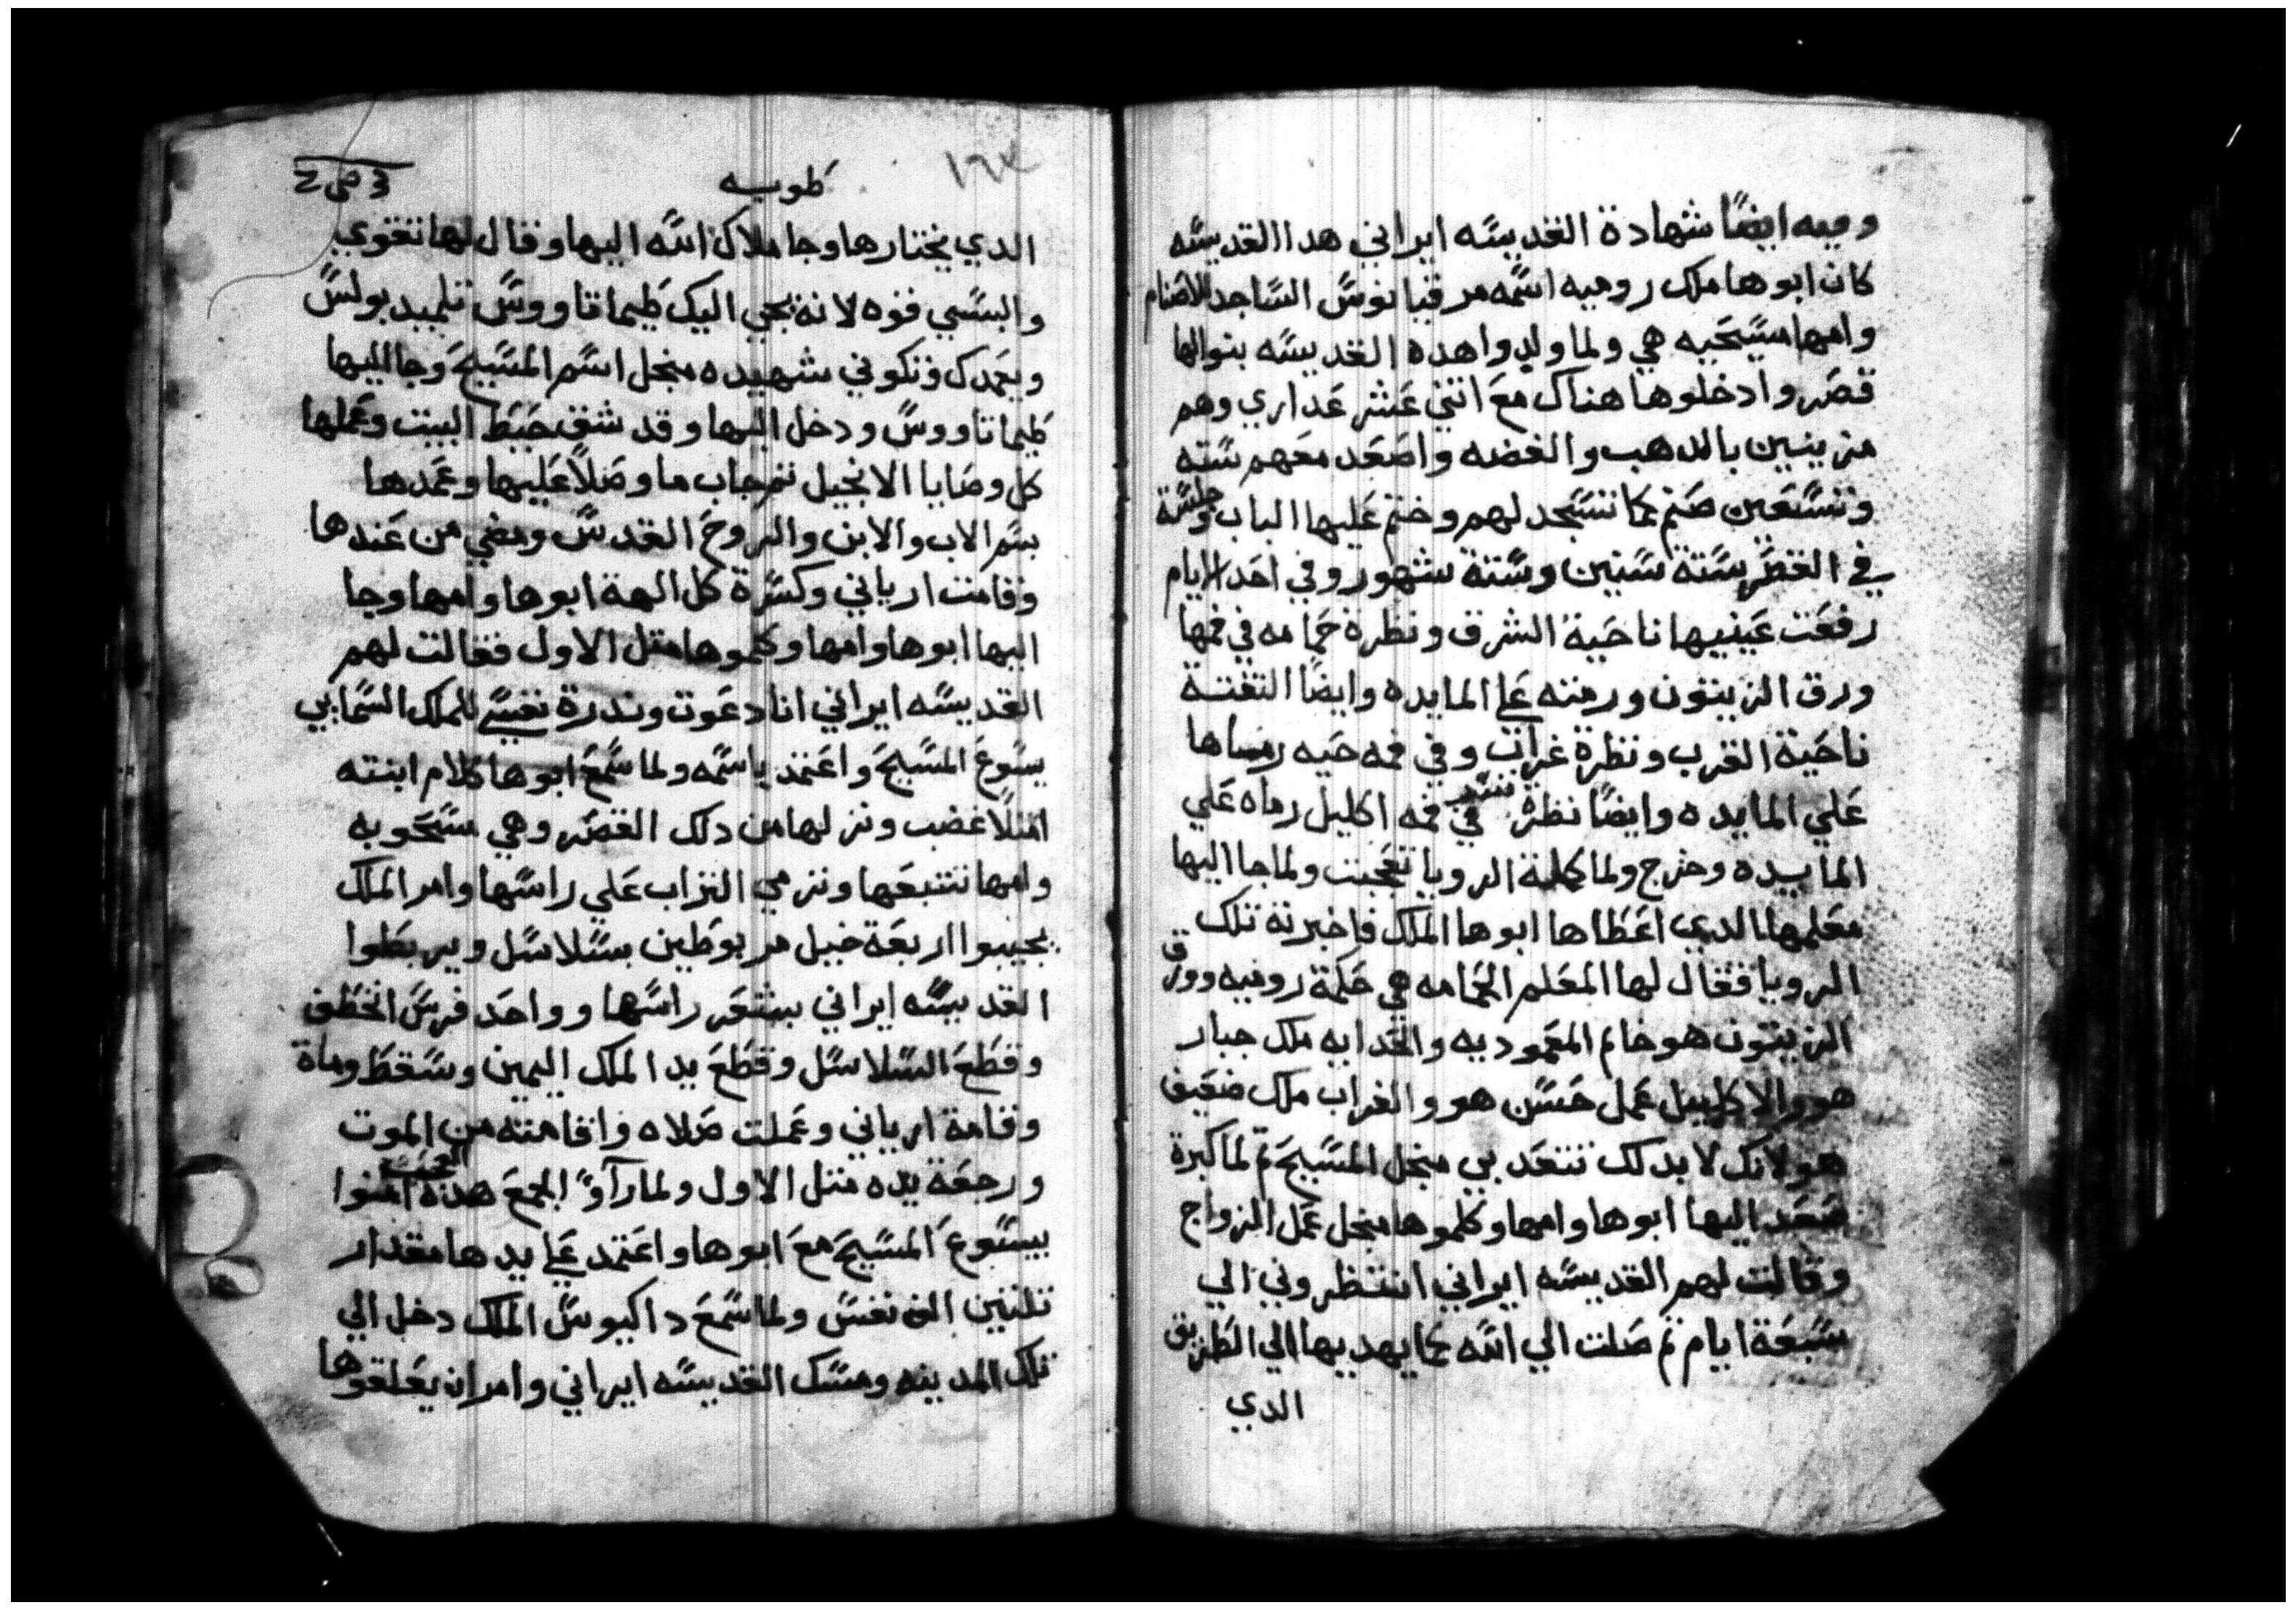 وفيه ايضًا شهادة القديسه ايراني هدا القديسه
كان ابوها ملك روميه اسمه مرقيانوس الساجد للاصنام
وامها مسيحيه هي ولما ولدوا هده القديسه بنوا لها
قصر وادخلوها هناك مع اتني عشر عداري وهم
مزينين بالدهب والفضه واصعد معهم سته
وتسعين صنم كما تسجد لهم وختم عليها الباب وجلسة
في القصر ستة سنين وستة شهور وفي احد الايام
رفعت عينيها ناحية الشرق ونظرة حمامه في فمها
ورق الزيتون ورمته علي المايده وايضًا التفتة
ناحية الغرب ونظرة غراب وفي فمه حيه رماها
علي المايده وايضًا نظرة نسر في فمه اكليل رماه علي
المايده وخرج ولما كملة الرويا تعجبت ولما جا اليها
معلمها الدي اعطاها ابوها الملك فاخبرته تلك
الرويا فقال لها المعلم الحمامه هي حكمة روميه وورق
الزيتون هو خاتم المعموديه والحدايه ملك جبار
هو والاكليل عمل حسن هو والغراب ملك ضعيف
هو لانك لابد لك تتعدبي منجل المسيح تم لما كبرة
صعد اليها ابوها وامها وكلموها منجل عمل الزواج
وقالت لهم القديسه ايراني انتظروني الي
سبعة ايام تم صلت الي الله كما يهديها الي الطريق
الدي
طوبيه
١٦٤
الدي يختارها وجا ملاك الله اليها وقال لها تقوي
والبسي قوه لانه يجي اليك طيماتاووس تلميد بولس
ويعمدك وتكوني شهيده منجل اسم المسيح وجا اليها
طيماتاووس ودخل اليها وقد شق حيط البيت وعملها
كل وصايا الانجيل تم جاب ما وصلا عليها وعمدها
بسم الاب والابن والروح القدس ومضي من عندها
وقامت ارياني وكسرة كل الهة ابوها وامها وجا
اليها ابوها وامها وكلموها متل الاول فقالت لهم
القديسه ايراني انا دعوت وندرة نفسي للملك السمايي
يسوع المسيح واعتمد باسمه ولما سمع ابوها كلام ابنته
امتلا غضب ونزلها من دلك القصر وهي مسحوبه
وامها تتبعها وترمي التراب علي راسها وامر الملك
يجيبوا اربعة خيل مربوطين بسلاسل ويربطوا
القديسه ايراني بشعر راسها وواحد فرس انخطف
وقطع السلاسل وقطع يد الملك اليمين وسقط وماة
وقامة ارياني وعملت صلاه واقامته من الموت
ورجعة يده متل الاول ولما رآو الجمع هده العجب امنوا
بيسوع المسيح مع ابوها واعتمد علي يدها مقدار
تلتين الف نفس ولما سمع داكيوس الملك دخل الي
تلك المدينه ومسك القديسه ايراني وامر ان يعلقوها